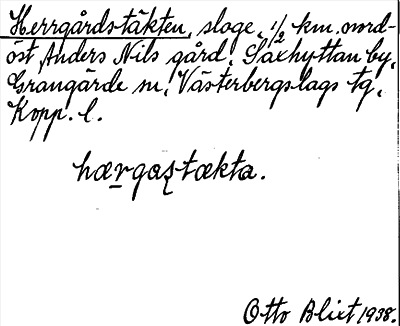 Herrgårds-täkten, sloge, 1/2 km. nord-
öst Anders Nils gård, Saxhyttan by,
Grangärde sn, Västerbergslags tg,
Kopp. l.
hærgaştækta.
Otto Blixt 1938.